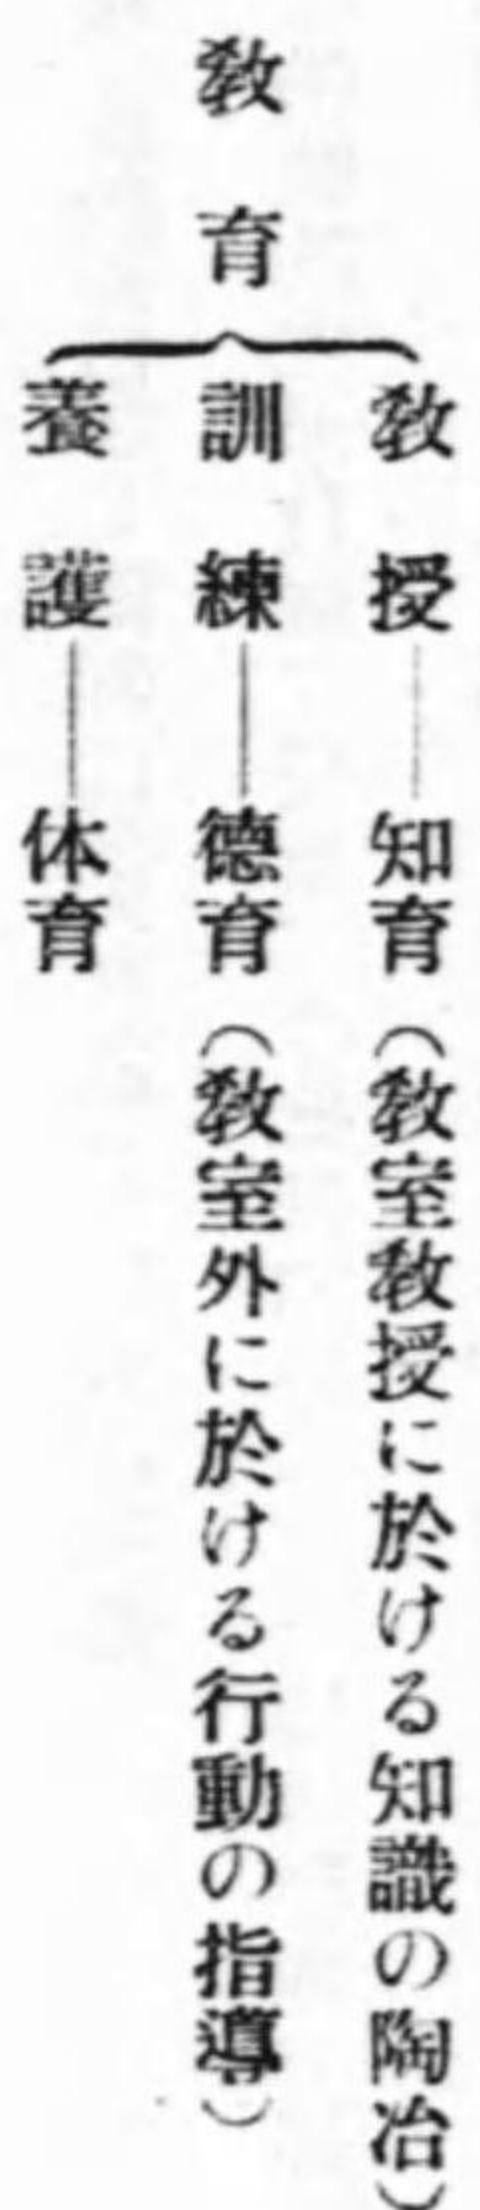 教育
教授―知育（教室教授に於ける知識の陶冶）
訓練―徳育（教室外に於ける行動の指導）
養護―体育